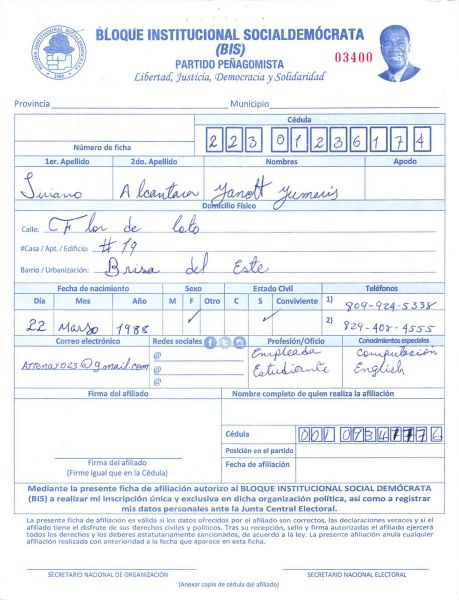 BLOQUE INSTITUCIONAL SOCIALDEMÓCRATA
(BIS)
PARTIDO PEÑAGOMISTA
03400
Libertad, Justicia, Democracia y Solidaridad
Provincia Municipio
Cédula
Número de ficha 223 0123617 4
1er. Apellido 2do. Apellido Nombres Apodo
Liriano Alcantara Yanett Yumeris
Domicilio Físico
Calle: C Flor de loto
#Casa / Apt. / Edificio: # 19
Barrio / Urbanización: Brisa del Este
Fecha de nacimiento Sexo Estado Civil Teléfonos
Día Mes Año M F Otro C S Conviviente 1) 809-924-5338
22 Marzo 1988 ✓ ✓ 2) 829-408-4555
Correo electrónico Redes sociales Profesión/Oficio Conocimientos especiales
@ Empleada Computación
@gmail.com @ Estudiante English
@
Firma del afiliado Nombre completo de quien realiza la afiliación
Cédula 001 0934177 6
Posición en el partido
Firma del afiliado
(Firme igual que en la Cédula) Fecha de afiliación
Mediante la presente ficha de afiliación autorizo al BLOQUE INSTITUCIONAL SOCIAL DEMÓCRATA
(BIS) a realizar mi inscripción única y exclusiva en dicha organización política, así como a registrar
mis datos personales ante la Junta Central Electoral.
La presente ficha de afiliación es válida si los datos ofrecidos por el afiliado son correctos, las declaraciones veraces y si el
afiliado tiene el disfrute de sus derechos civiles y políticos. Tras su recepción, sello y firma autorizadas el afiliado ejercerá
todos los derechos y los deberes estatutariamente sancionados, de acuerdo a la ley. La presente afiliación anula cualquier
afiliación realizada con anterioridad a la fecha que aparece en esta ficha.
SECRETARIO NACIONAL DE ORGANIZACIÓN SECRETARIO NACIONAL ELECTORAL
(Anexar copia de cédula del afiliado)